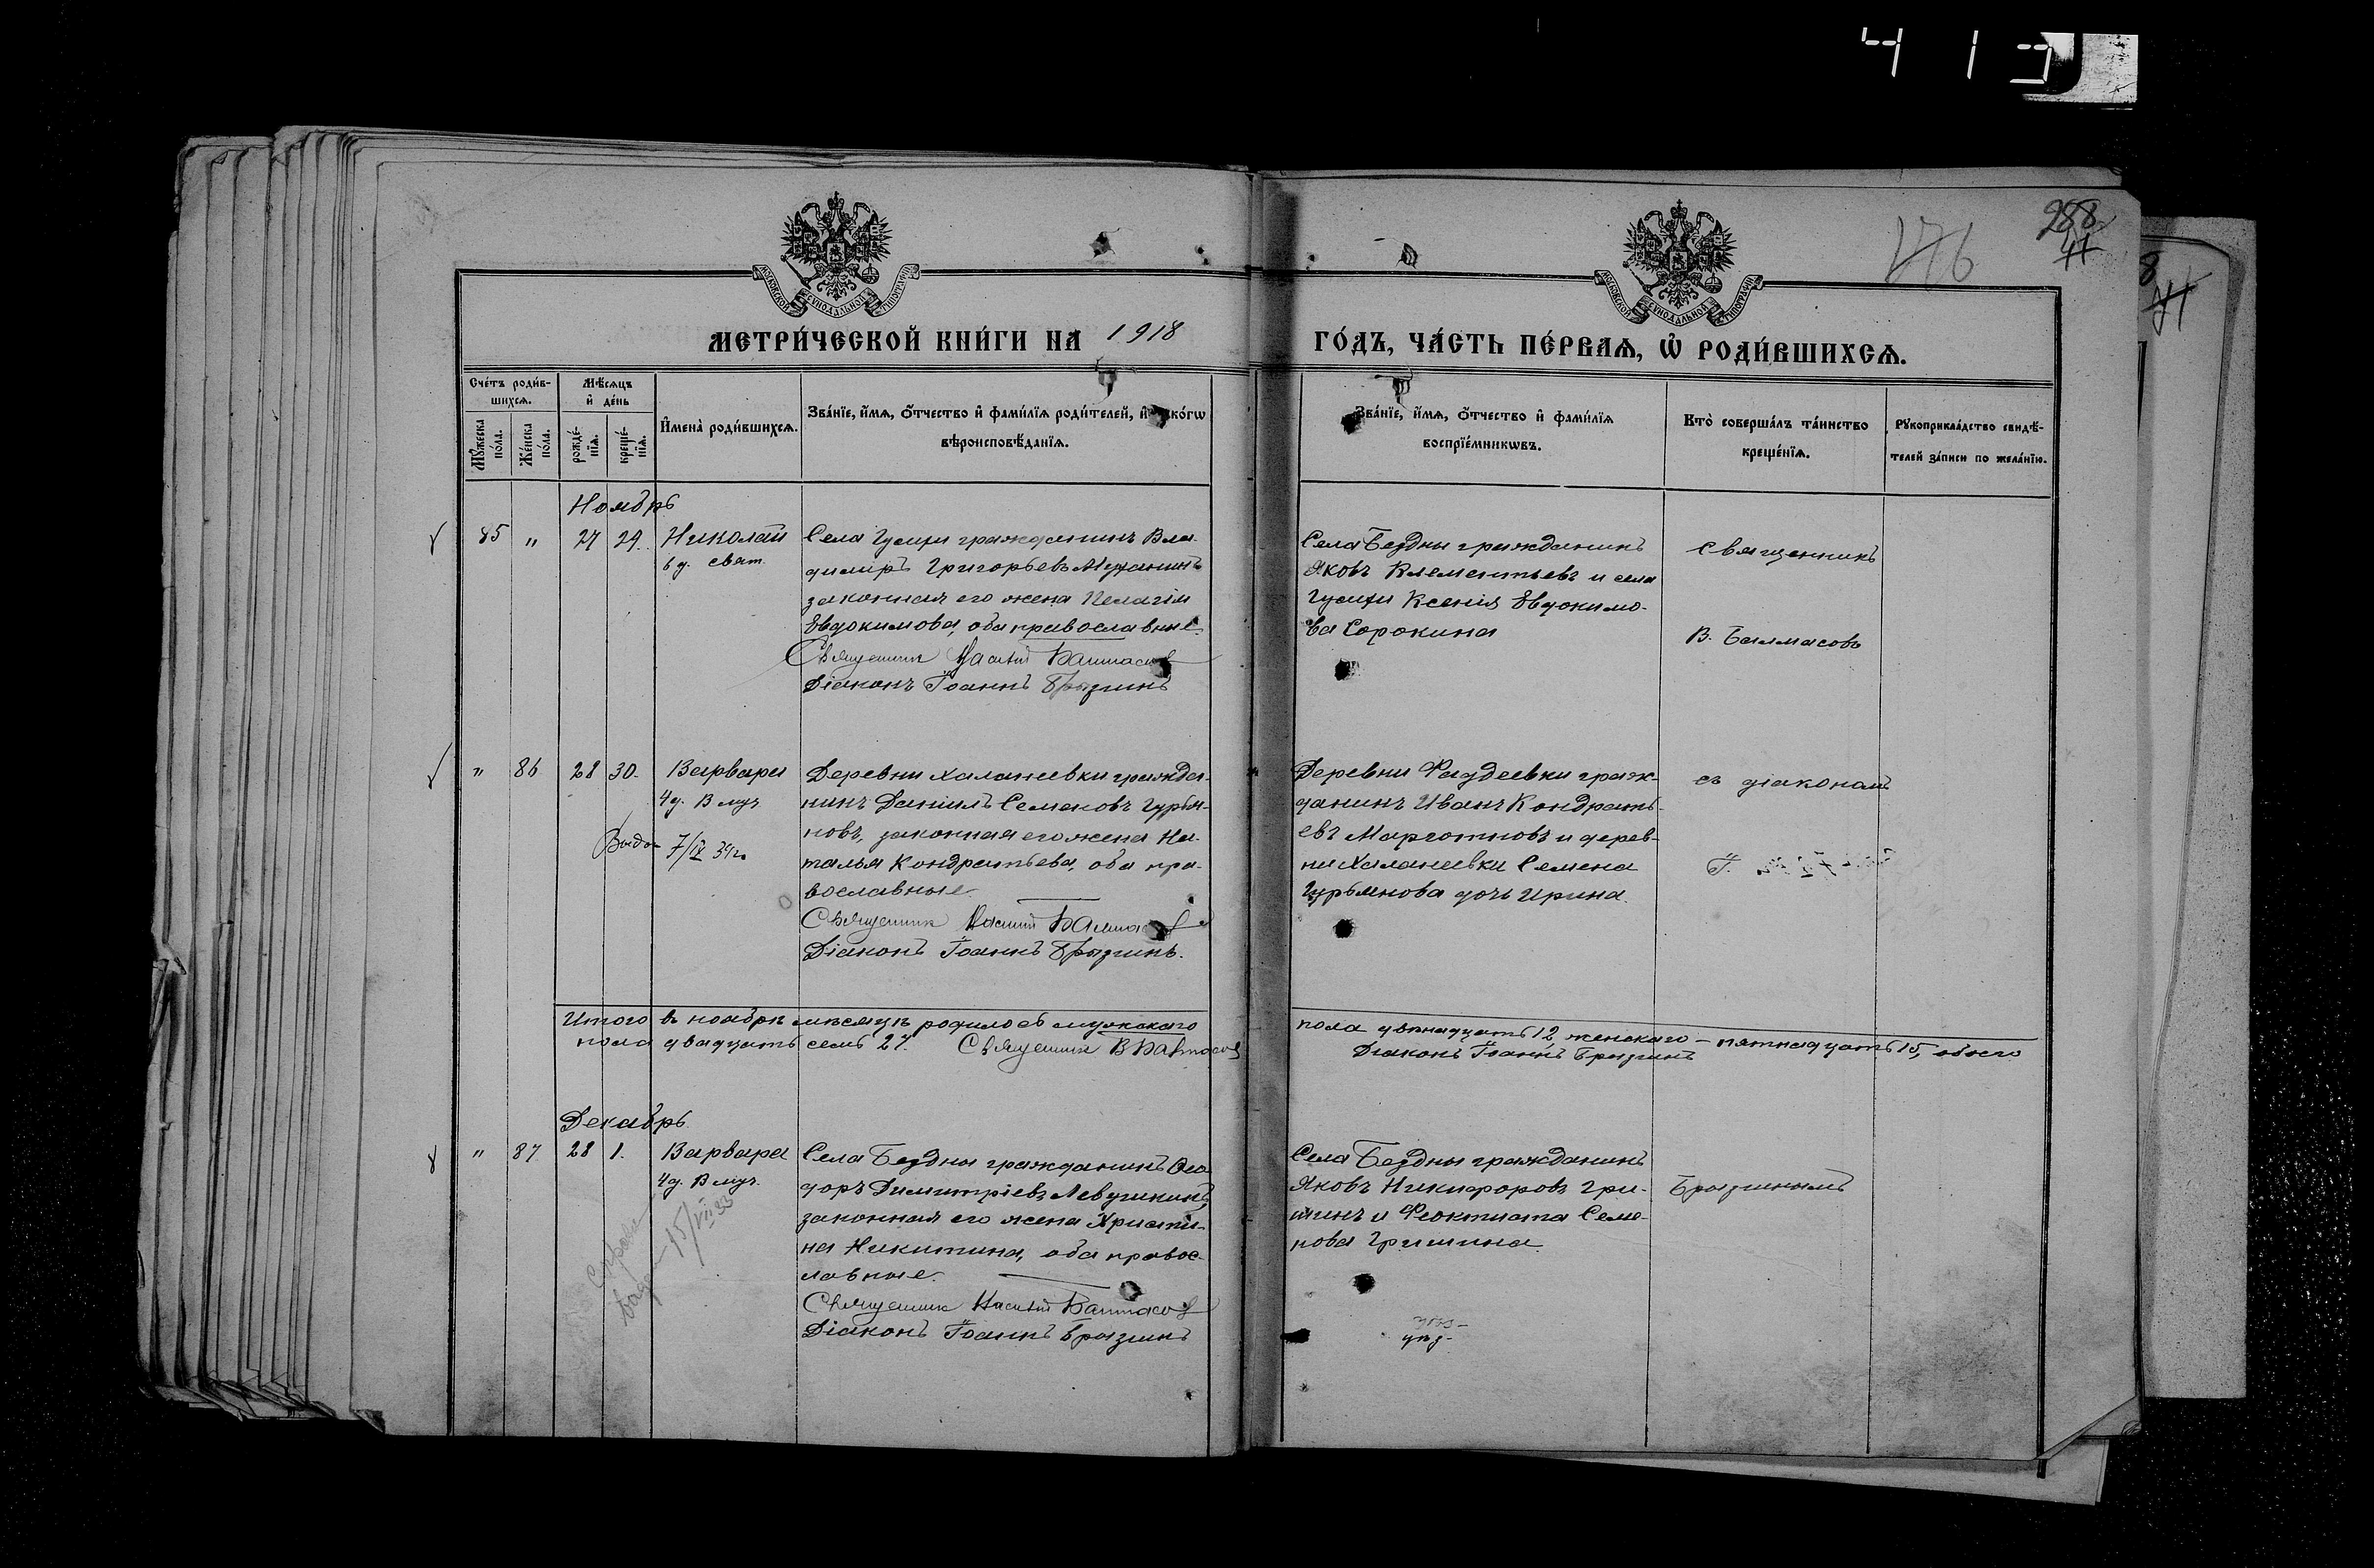 413
176
288
41
МЕТРИ́ЧЕСКОЙ КНИ́ГИ НА 1918 ГО́ДЪ, ЧА́СТЬ ПЕ́РВАѦ, Ѡ҆ РОДИ́ВШИХСѦ.
Сче́тъ роди́вшихсѧ.
Мѣ́сѧцъ и҆ де́нь
Мꙋ́жеска по́ла.
Же́нска по́ла.
рожде́нїѧ.
креще́нїѧ.
И҆мена̀ роди́вшихсѧ.
Зва́нїе, и҆́мѧ, ѻ҆́тчество и҆ фами́лїѧ роди́телей, и҆ како́гѡ
вѣроисповѣ́данїѧ.
Зва́нїе, и҆́мѧ, ѻ҆́тчество и҆ фами́лїѧ
воспрїе́мникѡвъ.
Кто̀ соверша́лъ та́инство
креще́нїѧ.
Рꙋкоприкла́дство свидѣ́-
телей за́писи по жела́нїю.
Ноябрь
85 " 27 29. Николай
6 д. свят.
Села Гусихи гражданинъ Вла-
димиръ Григорьевъ
законная его жена Пелагія
Евдокимова, оба православные.
Священник Василий Балмасов
Діаконъ Іоаннъ Брызгинъ
Села Бездны гражданинъ
Яковъ Клементьевъ и села
Гусихи Ксенія Евдокимо-
ва Сорокина
Священникъ
В. Балмасовъ
" 86 28 30. Варвара
4 д. В муч.
Выдан 7/IX 39 г.
Деревни Халанеевки гражда-
нинъ Даніилъ Семеновъ Гурья-
новъ, законная его жена На-
талья Кондратьева, оба пра-
вославные
Священник Василий Балмасов
Діаконъ Іоаннъ Брызгинъ.
Деревни Фаддеевки граж-
данинъ Иванъ Кондрать-
евъ и дерев-
ни Халанеевки Семена
Гурьянова дочь Ирина.
съ діакономъ
І.
Итого въ ноябрѣ мѣсяцѣ родилось мужскаго пола двѣнадцать 12, женскаго – пятнадцать 15, обоего
пола двадцать семь 27. Священник В Балмасов Діаконъ Іоаннъ Брызгинъ
Декабрь
" 87 28 1. Варвара
4 д. В муч.
Справка
выдан 15/VII 33
Села Бездны гражданинъ Ѳео-
доръ Димитріевъ Левушкинъ,
законная его жена Христи-
на Никитина, оба правос-
лавные.
Священник Василий Балмасов
Діаконъ Іоаннъ Брызгинъ
Села Бездны гражданинъ
Яковъ Никифоровъ Гри-
шинъ и Феоктиста Семе-
нова Гришина.
Брызгинымъ